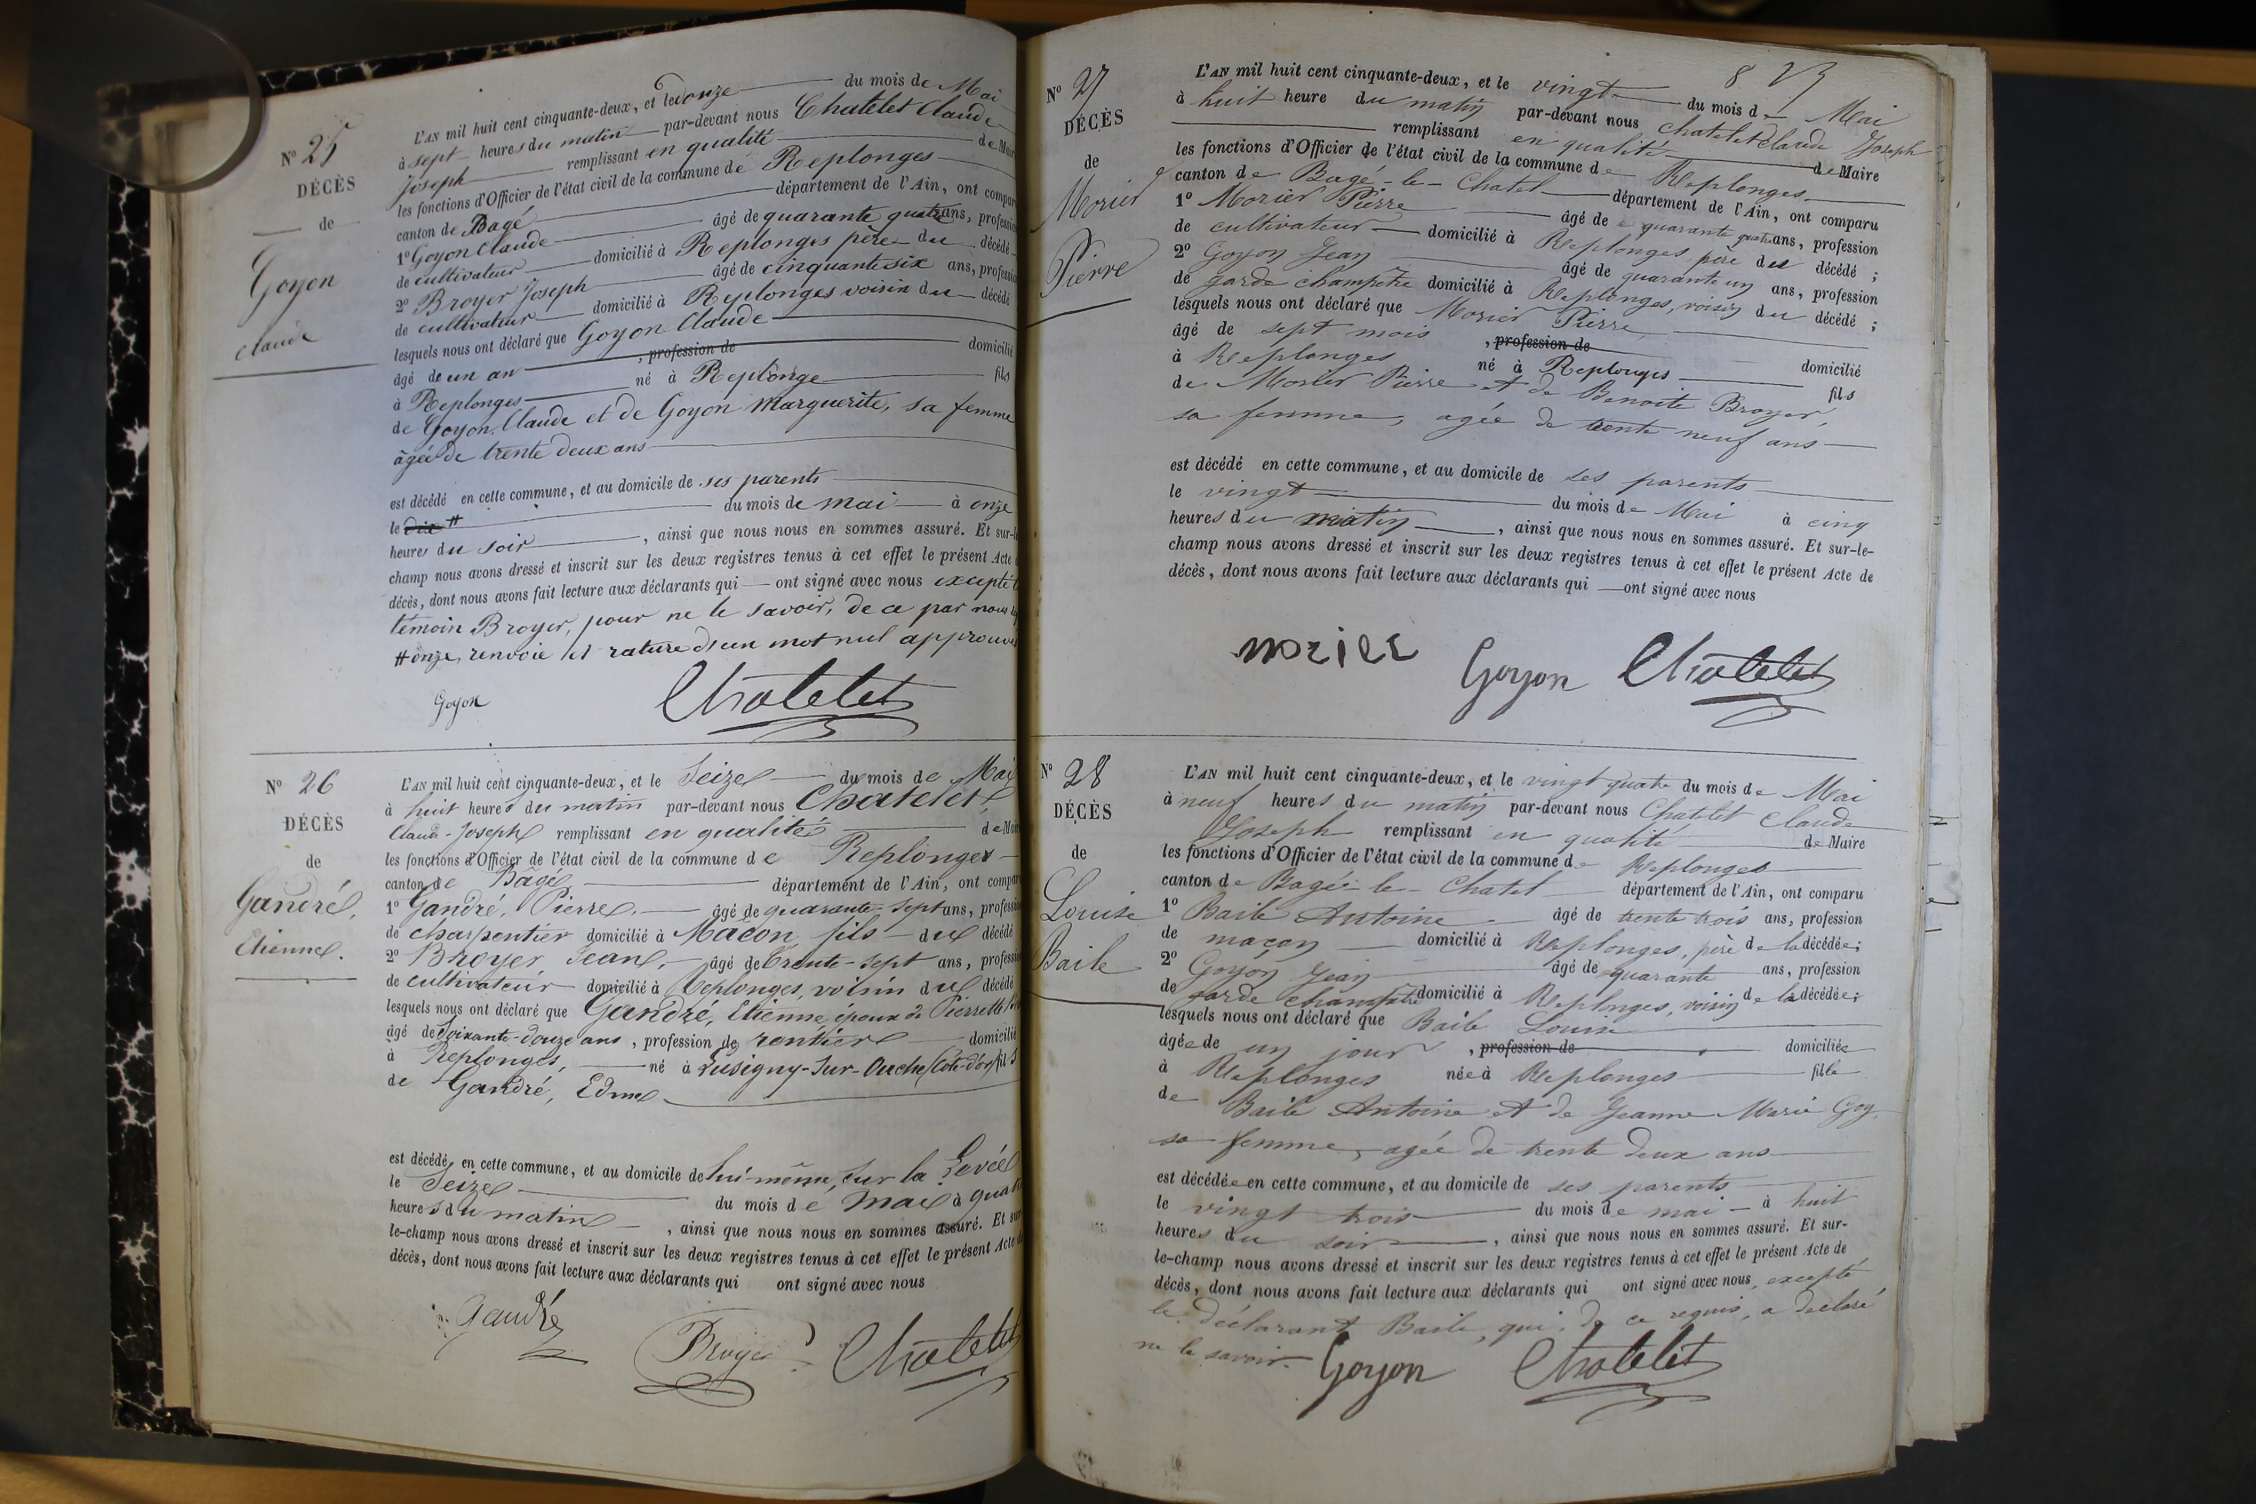 N° 25
DÉCÈS
de
Goyon
Claude
L'AN mil huit cent cinquante-deux, et le onze du mois de Mai
à sept heures du matin par-devant nous Chatelet Claude
Joseph remplissant en qualité de Maire
les fonctions d'Officier de l'état civil de la commune de Replonges
canton de Bagé département de l'Ain, ont compar
1° Goyon Claude âgé de quarante quatre ans, profession
de cultivateur domicilié à Replonges père du décédé
2° Broyer Joseph âgé de cinquante six ans, profession
de cultivateur domicilié à Replonges voisin du décédé
lesquels nous ont déclaré que Goyon Claude
âgé de un an , profession de domicilié
à Replonges né à Replonge fils
de Goyon Claude et de Goyon Marguerite, sa femme
âgée de trente deux ans
est décédé en cette commune, et au domicile de ses parents
le dix # du mois de mai à onze
heures du soir , ainsi que nous nous en sommes assuré. Et sur-le
champ nous avons dressé et inscrit sur les deux registres tenus à cet effet le présent Acte
décès, dont nous avons fait lecture aux déclarants qui ont signé avec nous excepté
témoin Broyer, pour ne le savoir, de ce par nous
# onze, renvoie et rature d'un mot nul approuvé
Goyon Chatelet
N° 26
DÉCÈS
de
Gandré,
Etienne.
L'AN mil huit cent cinquante-deux, et le Seize du mois de Mai
à huit heures du matin par-devant nous Chatelet
Claud-Joseph remplissant en qualité de Maire
les fonctions d'Officier de l'état civil de la commune de Replonges
canton de Bagé département de l'Ain, ont compar
1° Gandré, Pierre, âgé de quarante-sept ans, profession
de charpentier domicilié à Macon fils du décédé
2° Broyer Jean, âgé de trente-sept ans, profession
de cultivateur domicilié à Replonges, voisin du décédé
lesquels nous ont déclaré que Gandré, Etienne époux de Pierrette
âgé de soixante-douze ans , profession de rentier domicilié
à Replonges, né à Lusigny-Sur-Ouche (Côte-d'or) fils
de Gandré, Edme
est décédé en cette commune, et au domicile de lui-même, sur la Levée
le Seize du mois de Mai à quatre
heures du matin , ainsi que nous nous en sommes assuré. Et sur
le-champ nous avons dressé et inscrit sur les deux registres tenus à cet effet le présent Acte de
décès, dont nous avons fait lecture aux déclarants qui ont signé avec nous
Gandré Broyer Chatelet
8
N° 27
DÉCÈS
de
Morier
Pierre
L'AN mil huit cent cinquante-deux, et le vingt du mois de Mai
à huit heure du matin par-devant nous Chatelet Claude Joseph
remplissant en qualité de Maire
les fonctions d'Officier de l'état civil de la commune de Replonges
canton de Bagé-le-Chatel département de l'Ain, ont comparu
1° Morier Pierre âgé de quarante quatre ans, profession
de cultivateur domicilié à Replonges père du décédé ;
2° Goyon Jean âgé de quarante un ans, profession
de garde champêtre domicilié à Replonges, voisin du décédé ;
lesquels nous ont déclaré que Morier Pierre
âgé de sept mois , profession de domicilié
à Replonges né à Replonges fils
de Morier Pierre et de Benoite Broyer,
sa femme, agée de trente neuf ans
est décédé en cette commune, et au domicile de ses parents
le vingt du mois de Mai à cinq
heures du matin , ainsi que nous nous en sommes assuré. Et sur-le-
champ nous avons dressé et inscrit sur les deux registres tenus à cet effet le présent Acte de
décès, dont nous avons fait lecture aux déclarants qui ont signé avec nous
morier Goyon Chatelet
N° 28
DÉCÈS
de
Louise
Baile
L'AN mil huit cent cinquante-deux, et le vingt quatre du mois de Mai
à neuf heures du matin par-devant nous Chatelet Claude
Joseph remplissant en qualité de Maire
les fonctions d'Officier de l'état civil de la commune de Replonges
canton de Bagé-le-Chatel département de l'Ain, ont comparu
1° Baile Antoine âgé de trente trois ans, profession
de maçon domicilié à Replonges, père de la décédée ;
2° Goyon Jean âgé de quarante ans, profession
de garde champêtre domicilié à Replonges, voisin de la décédée ;
lesquels nous ont déclaré que Baile Louise
âgée de un jour , profession de domiciliée
à Replonges née à Replonges fille
de Baile Antoine et de Jeanne Marie Goy
sa femme, agée de trente deux ans
est décédée en cette commune, et au domicile de ses parents
le vingt trois du mois de mai à huit
heures du soir , ainsi que nous nous en sommes assuré. Et sur-
le-champ nous avons dressé et inscrit sur les deux registres tenus à cet effet le présent Acte de
décès, dont nous avons fait lecture aux déclarants qui ont signé avec nous, excepté
le déclarant Baile, qui, de ce requis, a déclaré
ne le savoir. Goyon Chatelet